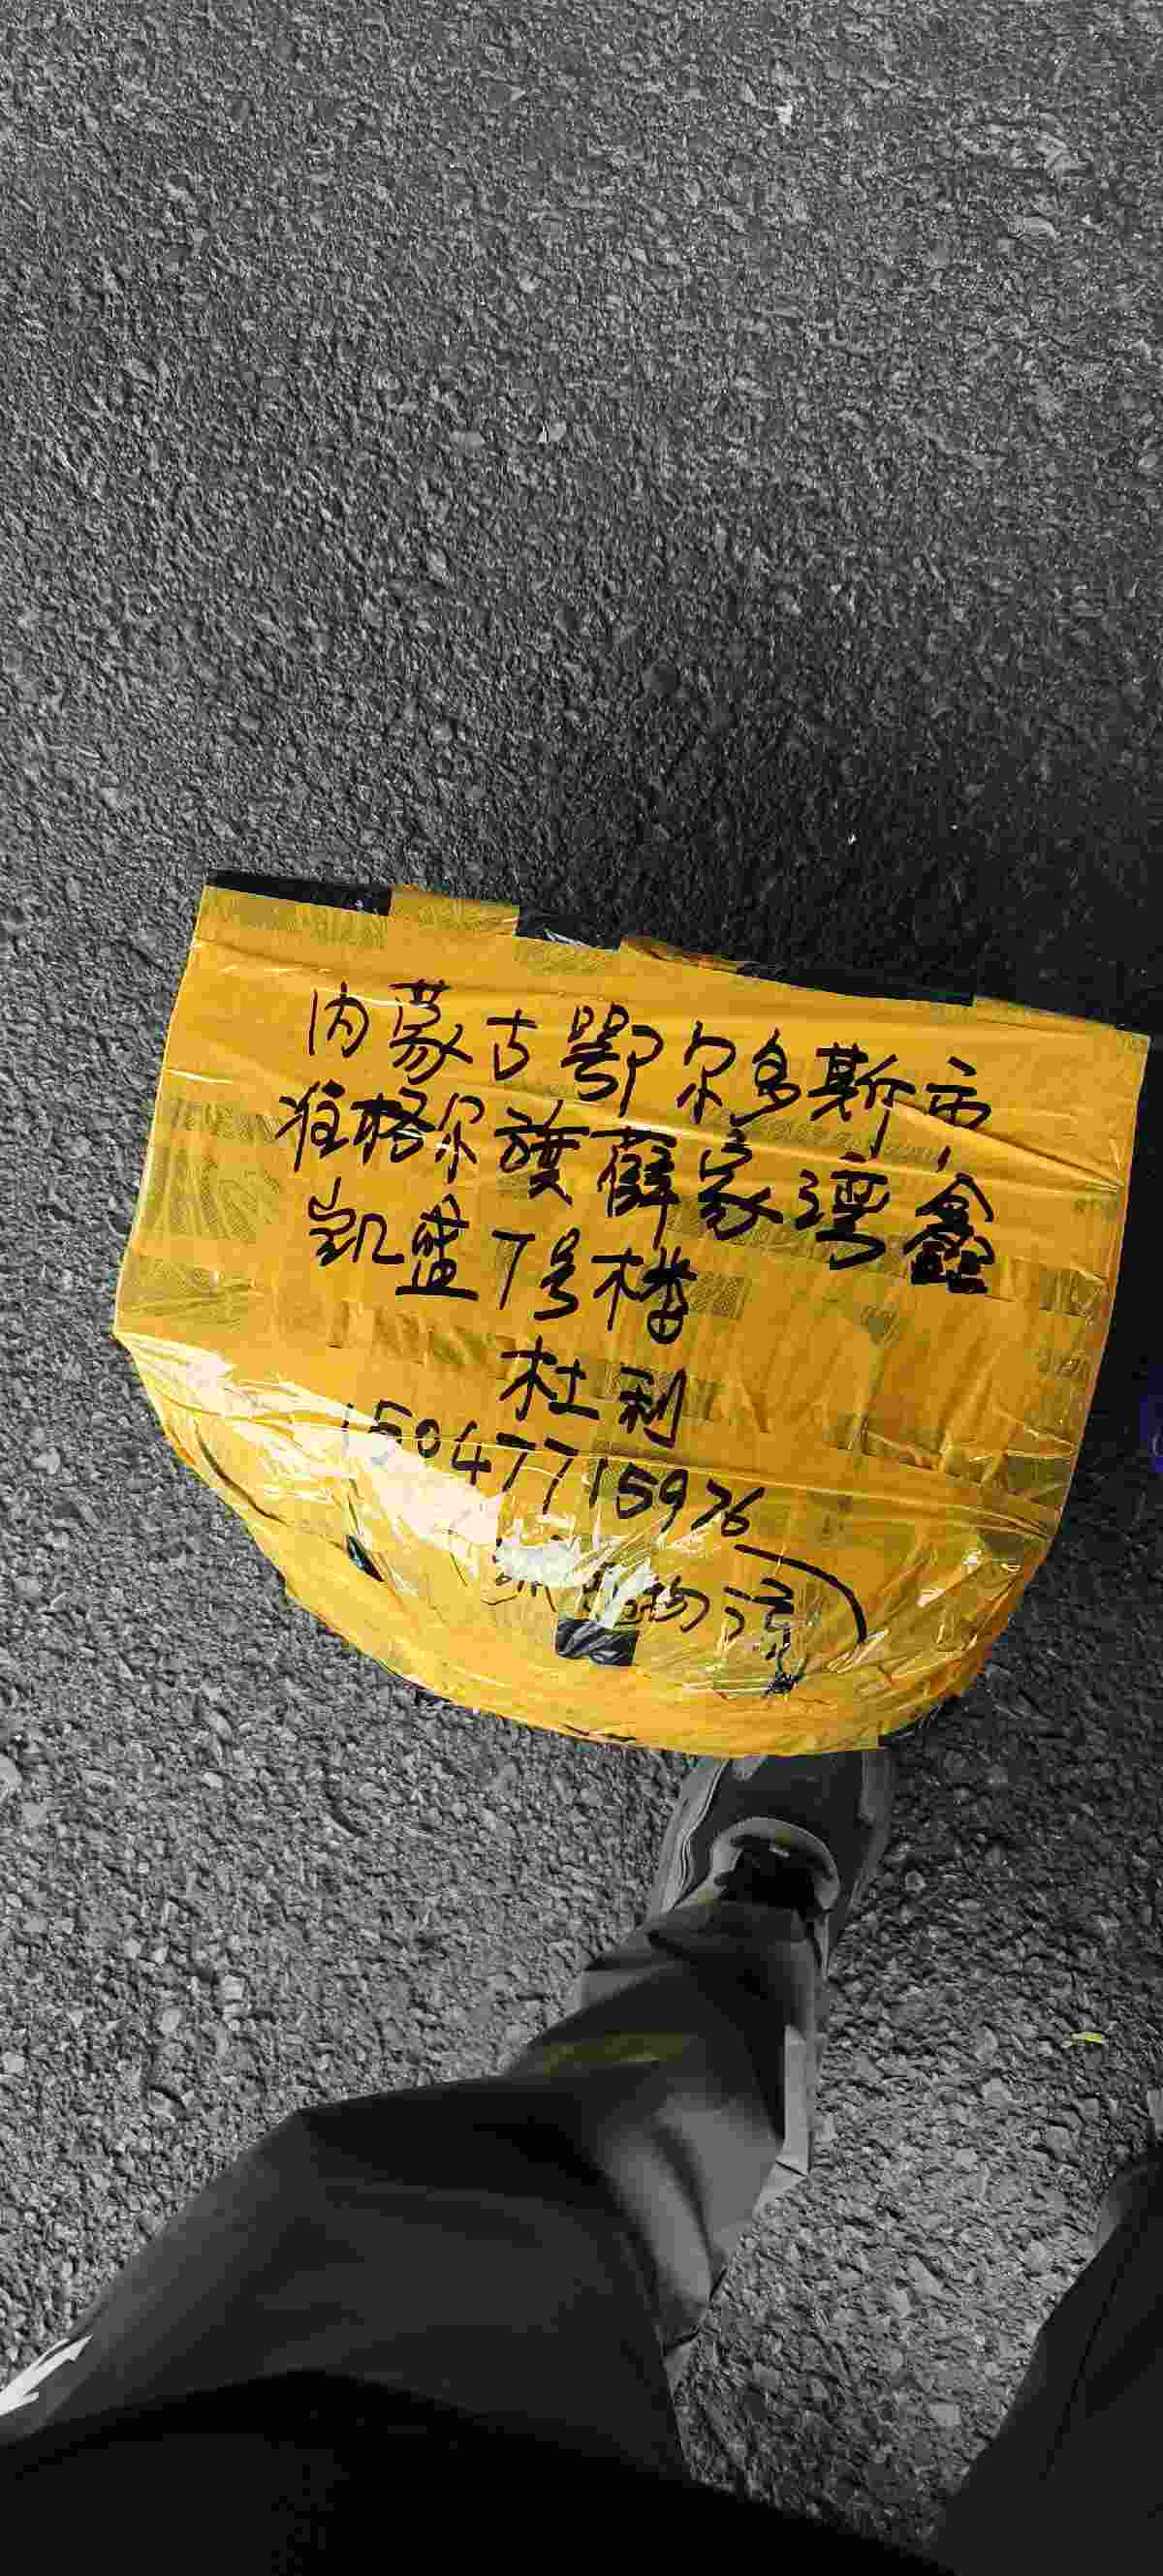 内蒙古鄂尔多斯市
准格尔旗薛家湾鑫
凯盛7号楼
杜利
15047715976
物流